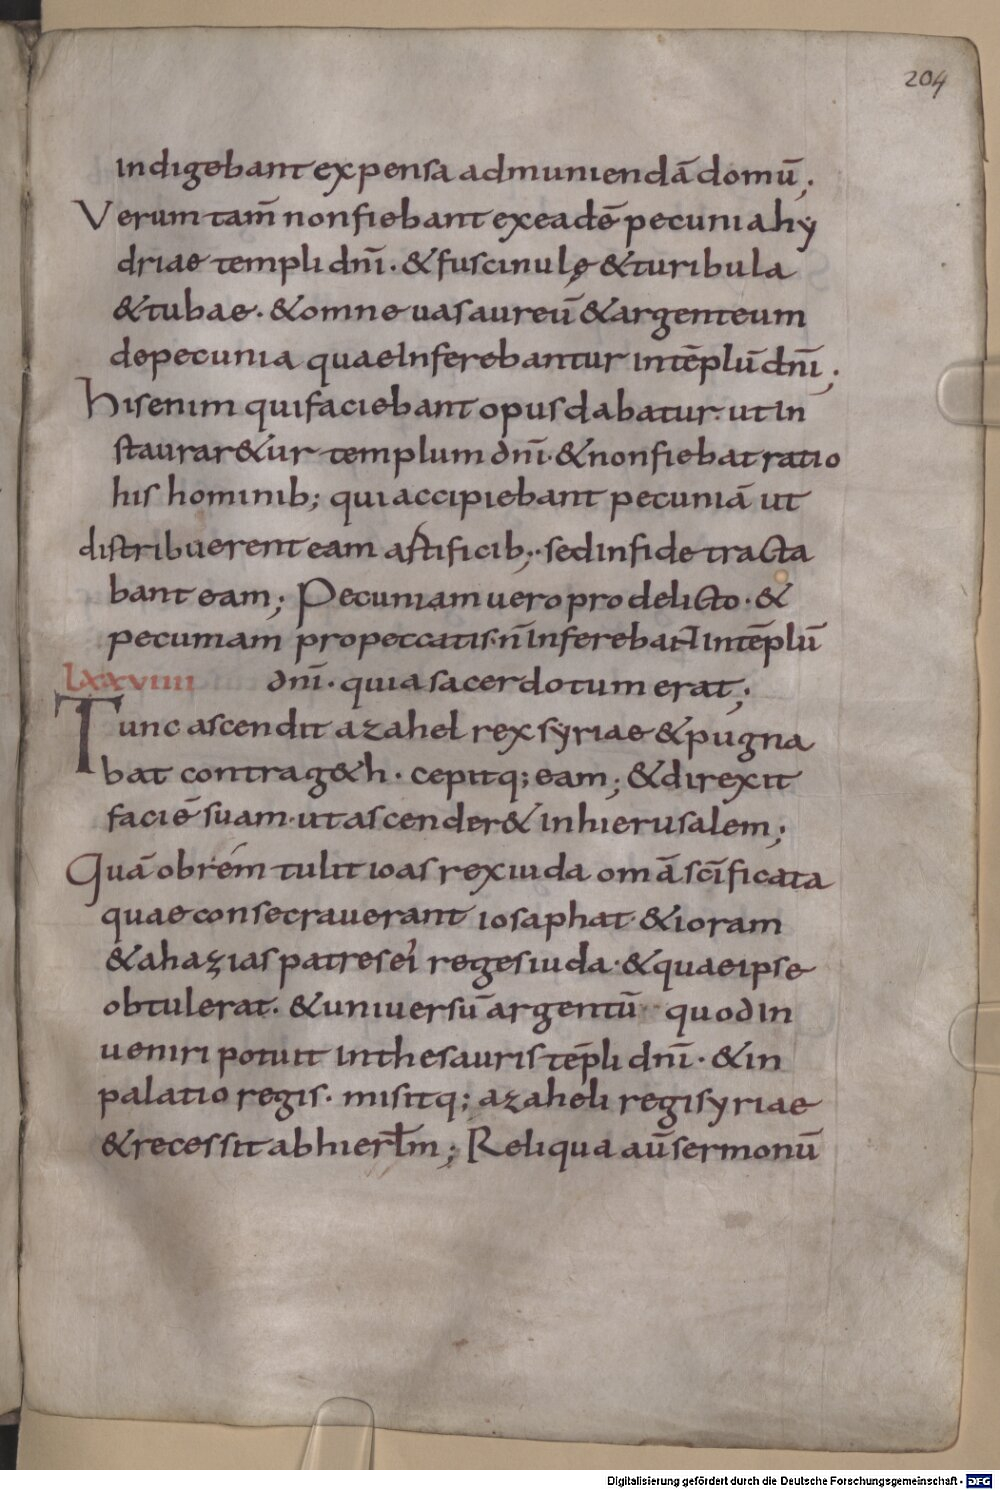 204
indigebant expensa admuniendā domū;
Verum tam̄ nonfiebant exeadē pecunia hy
driae templi dn̄i · & fuscinulę & turibula
& tubae · & omne uas aureū & argenteum
depecunia quae inferebantur intēplū dn̄i;
hisenim qui faciebant opus dabatur · ut in
staurar&ur templum dn̄i · & nonfiebat ratio
his hominib; qui accipiebant pecuniā ut
distribuerent eam artificib; · sed infide tracta
bant eam; Pecuniam uero pro delicto · &
pecuniam propeccatis · n̄ inferebant intēplū
LXXVIIII dn̄i · quia sacerdotum erat;
Tunc ascendit azahel rex syriae & pugna
bat contra g&h · cepitq; eam; & direxit
faciē suam · ut ascender& in hierusalem;
Quā obrem tulit ioas rex iuda om̄a sc̄ificata
quae consecrauerant iosaphat · & ioram
& ahazias patres ei reges iuda · & quae ipse
obtulerat · & uniuersū argentū quod in
ueniri potuit in thesauris tēpli dn̄i · & in
palatio regis · misitq; azaheli regi syriae
& recessit ab hierłm; Reliqua aū sermonū
Digitalisierung gefördert durch die Deutsche Forschungsgemeinschaft - DFG